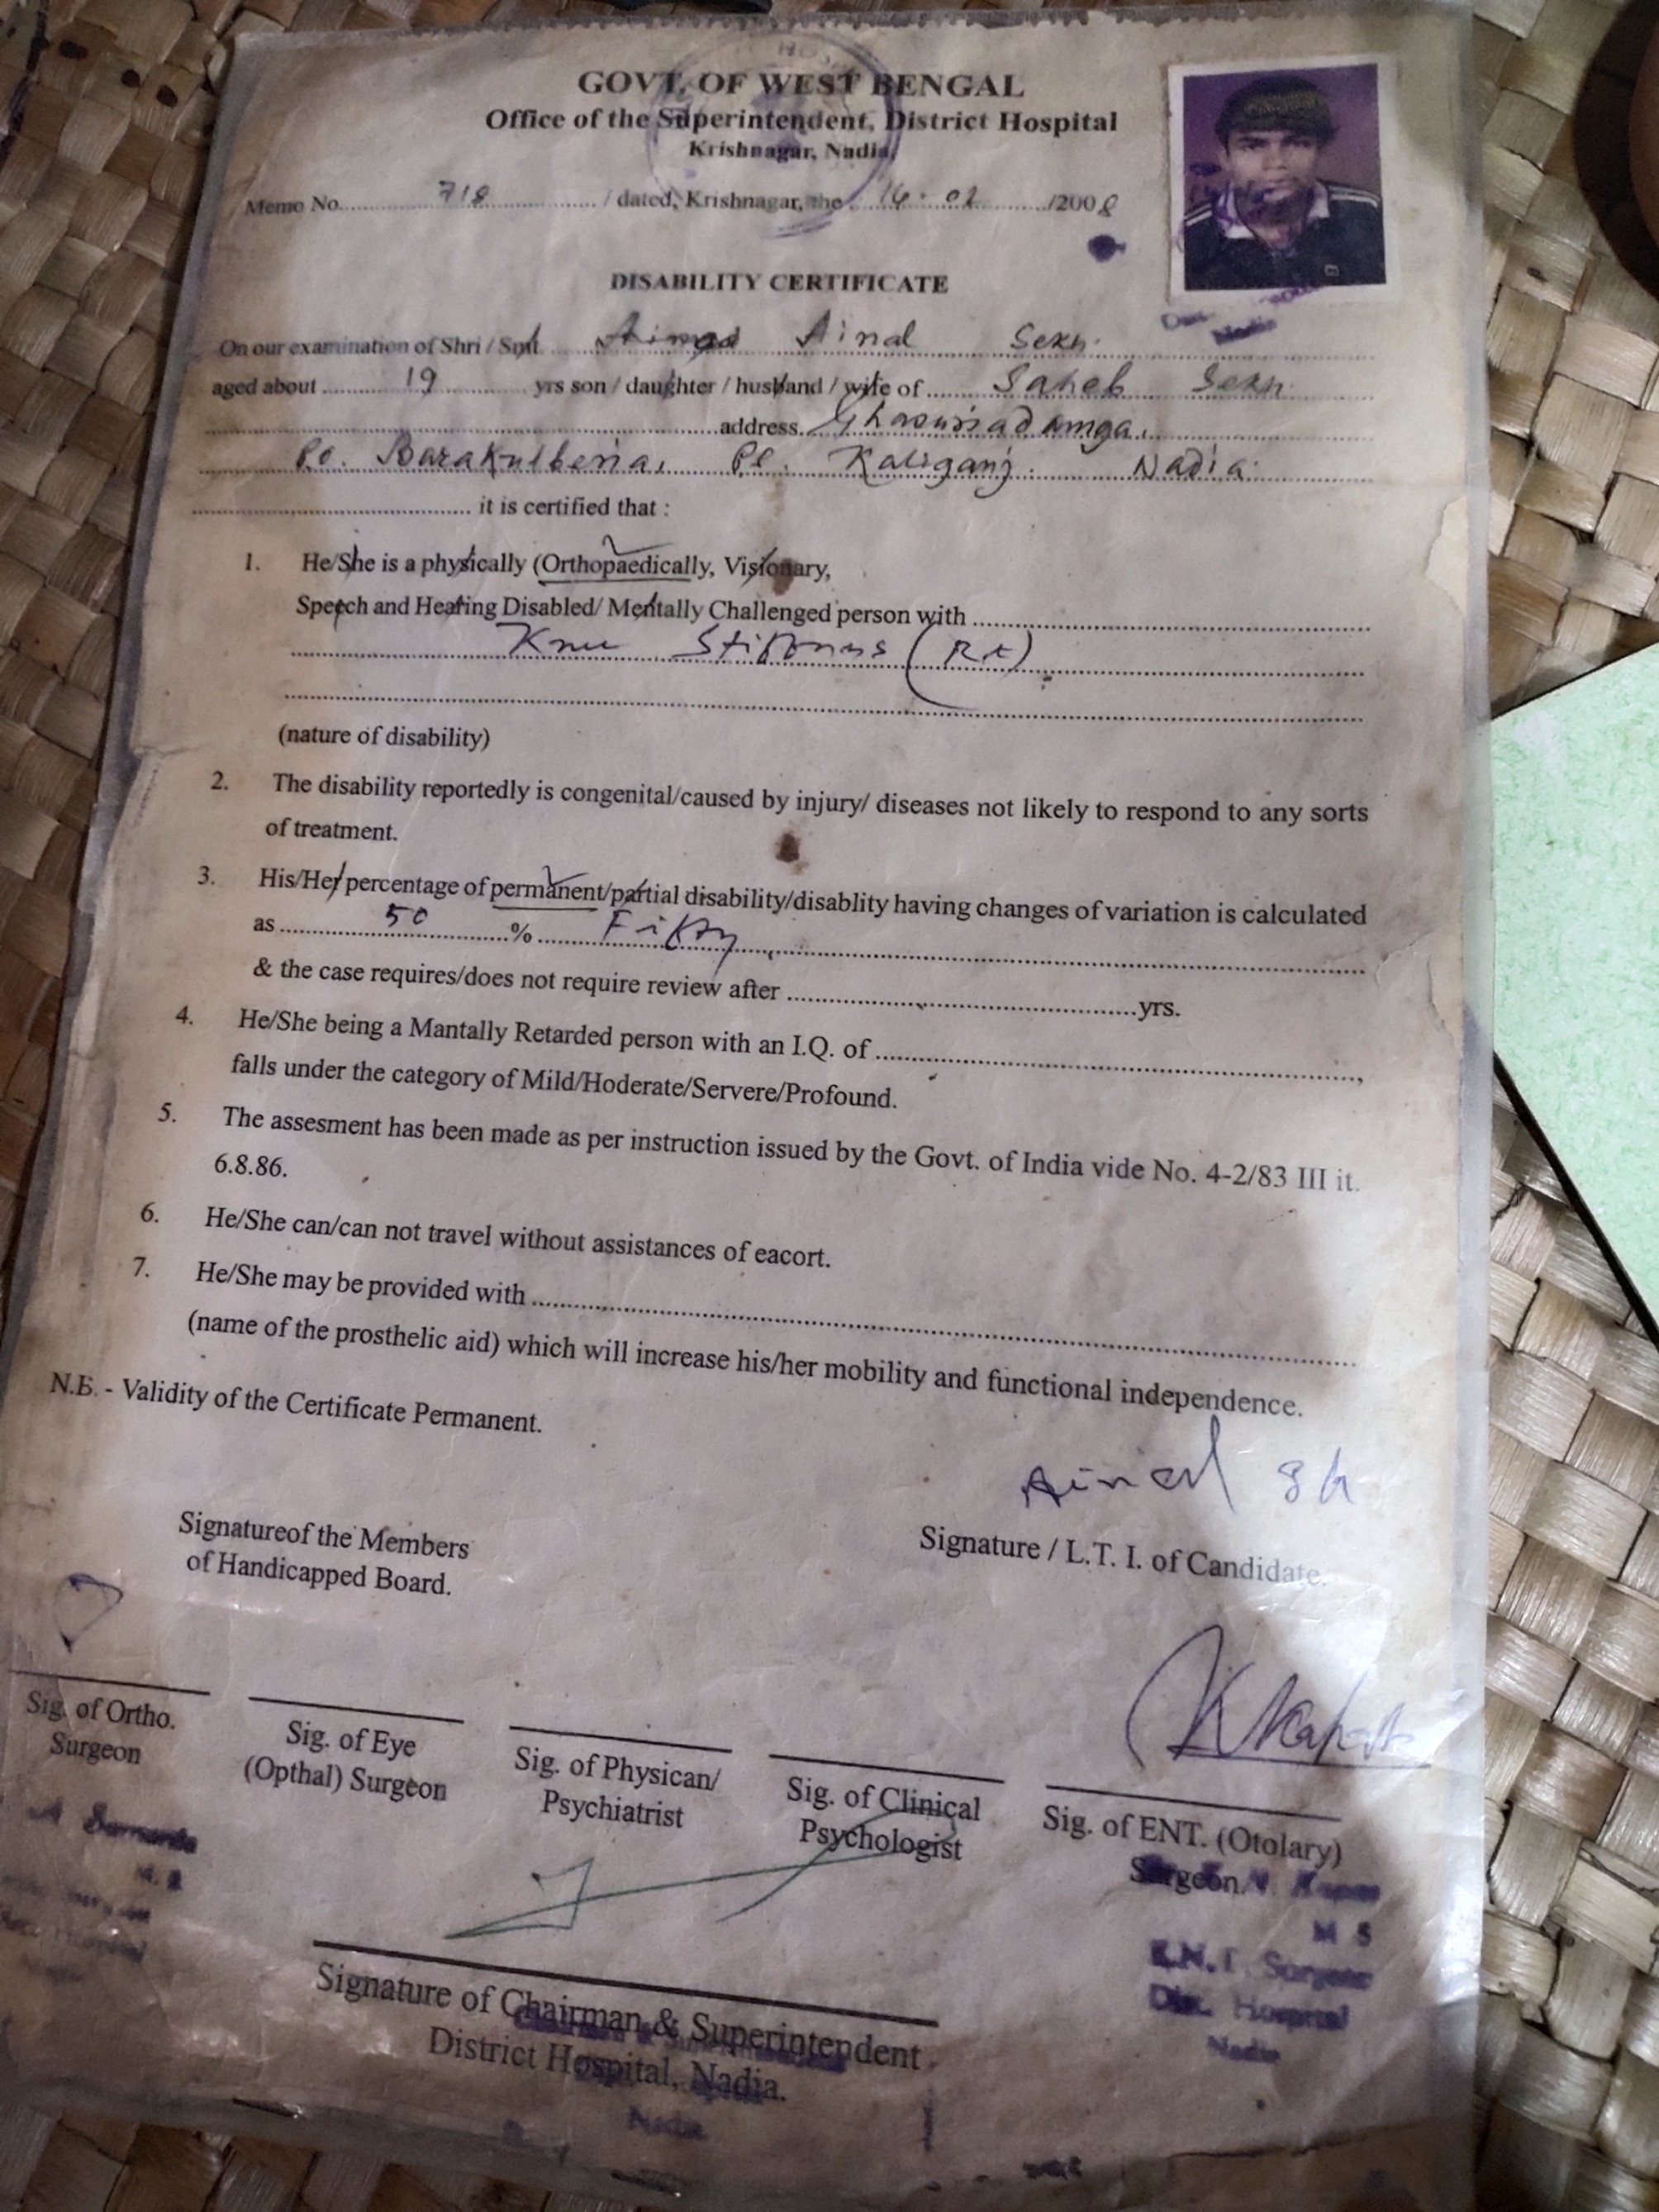 GOVT. OF WEST BENGAL
Office of the Superintendent, District Hospital
Krishnagar, Nadia
Memo No. 718 / dated, Krishnagar, the 14.02 /2008
DISABILITY CERTIFICATE
On our examination of Shri / Smt. Ainal Sekh.
aged about 19 yrs son / daughter / husband / wife of Saheb Sekh.
address.
Po. Barakulberia, Ps. Kaliganj. Nadia.
it is certified that :
1. He/She is a physically (Orthopaedically, Visionary,
Speech and Hearing Disabled/ Mentally Challenged person with
Knee Stiffness (Rt)
(nature of disability)
2. The disability reportedly is congenital/caused by injury/ diseases not likely to respond to any sorts
of treatment.
3. His/Her percentage of permanent/partial disability/disablity having changes of variation is calculated
as 50 % Fifty
& the case requires/does not require review after yrs.
4. He/She being a Mantally Retarded person with an I.Q. of ,
falls under the category of Mild/Hoderate/Servere/Profound.
5. The assesment has been made as per instruction issued by the Govt. of India vide No. 4-2/83 III it.
6.8.86.
6. He/She can/can not travel without assistances of eacort.
7. He/She may be provided with
(name of the prosthelic aid) which will increase his/her mobility and functional independence.
N.B. - Validity of the Certificate Permanent.
Ainal Sh
Signatureof the Members
of Handicapped Board.
Signature / L.T. I. of Candidate.
Sig. of Ortho.
Surgeon
Sig. of Eye
(Opthal) Surgeon
Sig. of Physican/
Psychiatrist
Sig. of Clinical
Psychologist
Sig. of ENT. (Otolary)
Surgeon
M S
E.N.T. Surgeon
Dist. Hospital
Nadia
Signature of Chairman & Superintendent
District Hospital, Nadia.
Nadia